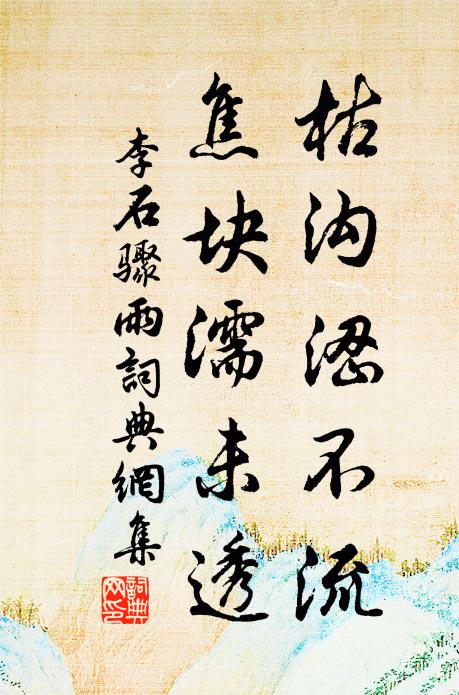 枯沟涩不流
焦块濡未透
李石驟雨詞典網集
詞典网印